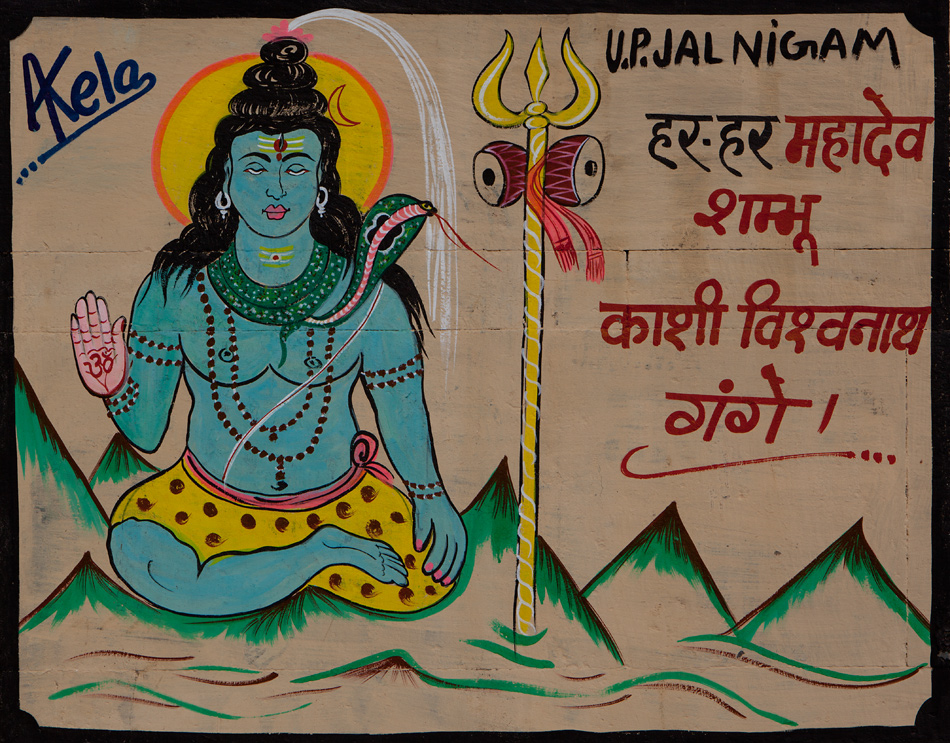 AKela
U.P. JAL NIGAM
हर-हर महादेव
शम्भू
काशी विश्वनाथ
गंगे।
ॐ